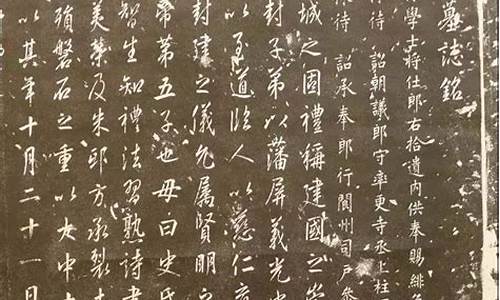 墓誌銘
學士將仕郎右拾遺内供奉賜緋
待詔朝議郎守率更寺丞上柱
待詔承奉郎行閬州司户參
城之固禮稱建國之
封子弟以藩屏義光
以至道臨人以慈仁
封建之儀允属賢明之
帝第五子也母曰史氏
智生知禮法習熟詩書
美榮及朱邸方承裂土
殞磐石之重以女中
以其年十月二十一日